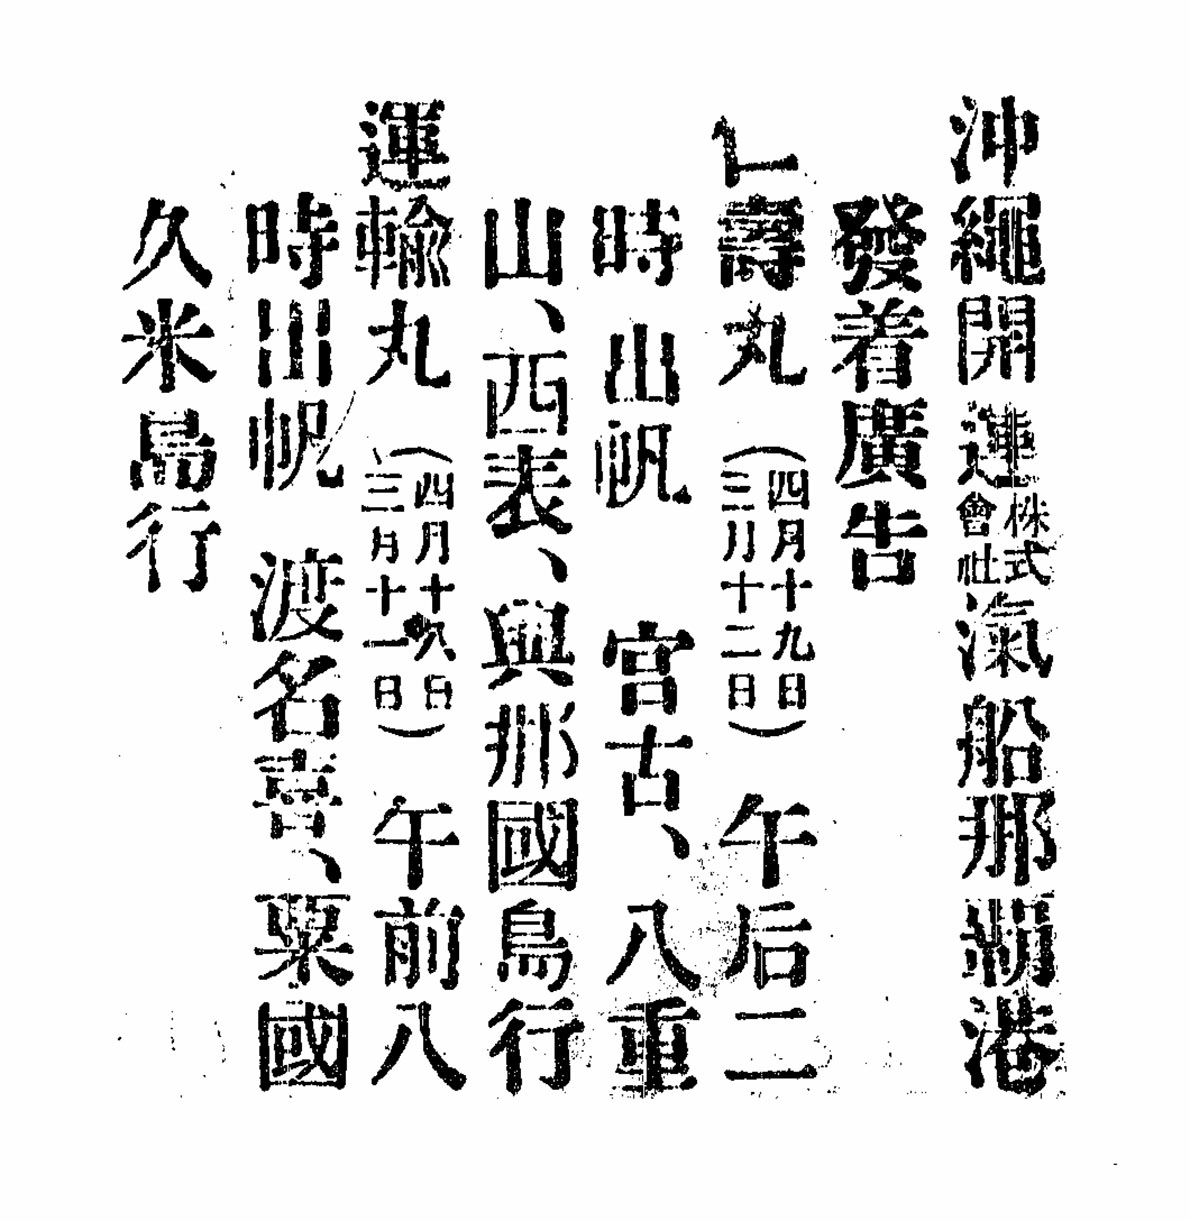 沖繩開運株式會社滊船那覇港
發着廣告
仁壽丸（四月十九日三月十二日）午后二
時出帆　宮古、八重
山、西表、與那國島行
運輸丸（四月十八日三月十一日）午前八
時出帆　渡名喜、粟國
久米島行